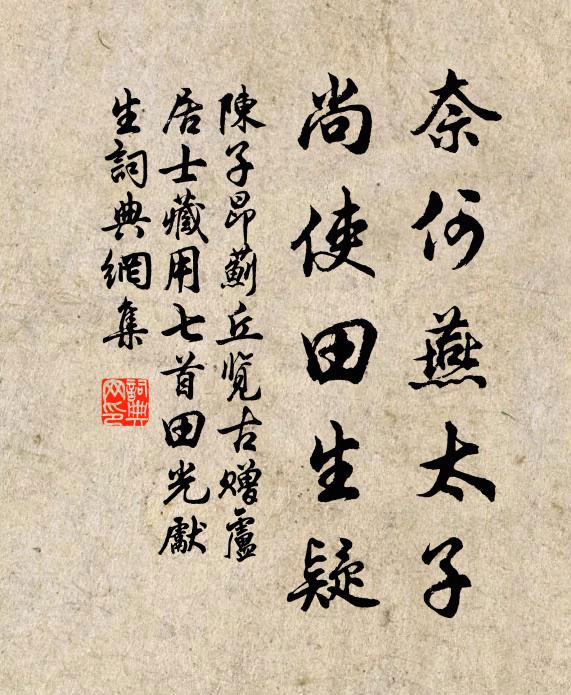 奈何燕太子
尚使田生疑
陳子昂薊丘覽古贈盧
居士藏用七首田光獻
生詞典網集
詞典网印